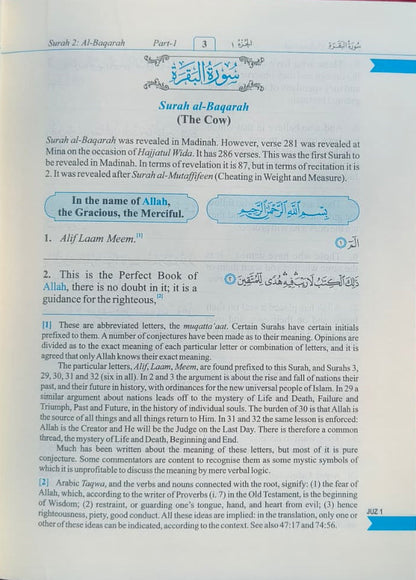 Surah 2: Al-Baqarah Part-1 3 الجزء ١ سورة البقرة
سورة البقرة
Surah al-Baqarah
(The Cow)
Surah al-Baqarah was revealed in Madinah. However, verse 281 was revealed at
Mina on the occasion of Hajjatul Wida. It has 286 verses. This was the first Surah to
be revealed in Madinah. In terms of revelation it is 87, but in terms of recitation it is
2. It was revealed after Surah al-Mutaffifeen (Cheating in Weight and Measure).
In the name of Allah,
the Gracious, the Merciful.
بِسْمِ اللَّهِ الرَّحْمَٰنِ الرَّحِيمِ
1. Alif Laam Meem.[1]
الٓمّٓ ۝١
2. This is the Perfect Book of
Allah, there is no doubt in it; it is a
guidance for the righteous,[2]
ذٰلِكَ الْكِتٰبُ لَا رَيْبَ ۛ فِيْهِ ۛ هُدًى لِّلْمُتَّقِيْنَ ۝٢
[1] These are abbreviated letters, the muqatta'aat. Certain Surahs have certain initials
prefixed to them. A number of conjectures have been made as to their meaning. Opinions are
divided as to the exact meaning of each particular letter or combination of letters, and it is
agreed that only Allah knows their exact meaning.
The particular letters, Alif, Laam, Meem, are found prefixed to this Surah, and Surahs 3,
29, 30, 31 and 32 (six in all). In 2 and 3 the argument is about the rise and fall of nations their
past, and their future in history, with ordinances for the new universal people of Islam. In 29 a
similar argument about nations leads off to the mystery of Life and Death, Failure and
Triumph, Past and Future, in the history of individual souls. The burden of 30 is that Allah is
the source of all things and all things return to Him. In 31 and 32 the same lesson is enforced:
Allah is the Creator and He will be the Judge on the Last Day. There is therefore a common
thread, the mystery of Life and Death, Beginning and End.
Much has been written about the meaning of these letters, but most of it is pure
conjecture. Some commentators are content to recognise them as some mystic symbols of
which it is unprofitable to discuss the meaning by mere verbal logic.
[2] Arabic Taqwa, and the verbs and nouns connected with the root, signify: (1) the fear of
Allah, which, according to the writer of Proverbs (i. 7) in the Old Testament, is the beginning
of Wisdom; (2) restraint, or guarding one's tongue, hand, and heart from evil; (3) hence
righteousness, piety, good conduct. All these ideas are implied: in the translation, only one or
other of these ideas can be indicated, according to the context. See also 47:17 and 74:56.
JUZ 1